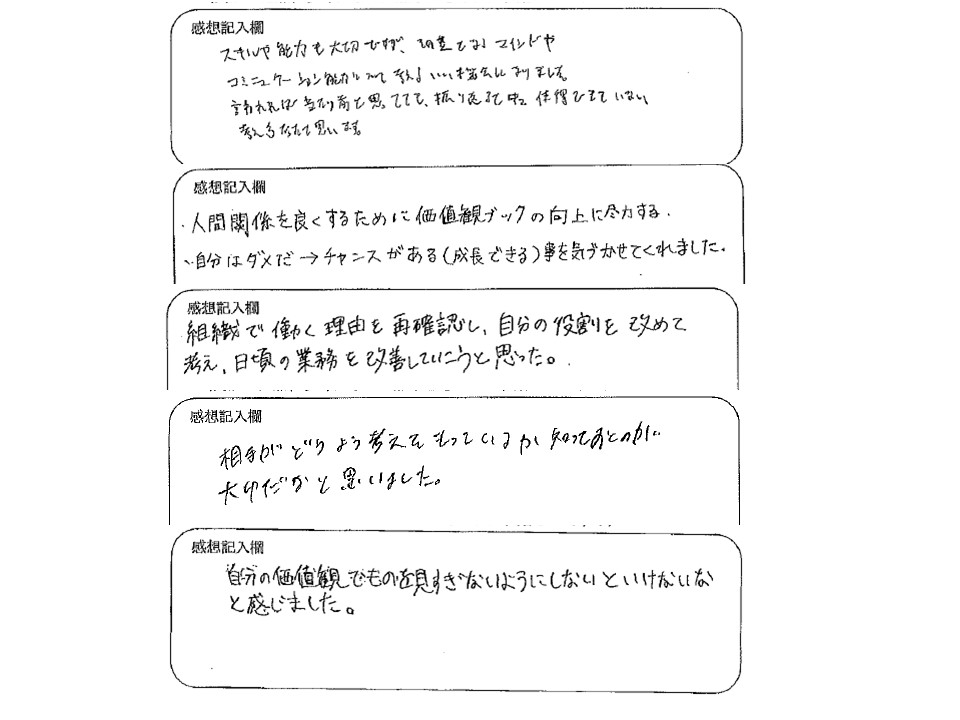 感想記入欄
スキルや能力も大切ですが、基盤となるマインドや
コミュニケーション能力について考えるいい機会になりました。
言われれば当たり前と思ってても、振り返ると中々体得できていない
考え方だなと思います。
感想記入欄
・人間関係を良くするために価値観ブックの向上に尽力する。
・自分はダメだ→チャンスがある(成長できる)事を気づかせてくれました。
感想記入欄
組織で働く理由を再確認し、自分の役割を改めて
考え、日頃の業務を改善していこうと思った。
感想記入欄
相手がどのよう考えをもっているか知っておくのが
大切だなと思いました。
感想記入欄
自分の価値観でものを見すぎないようにしないといけないな
と感じました。